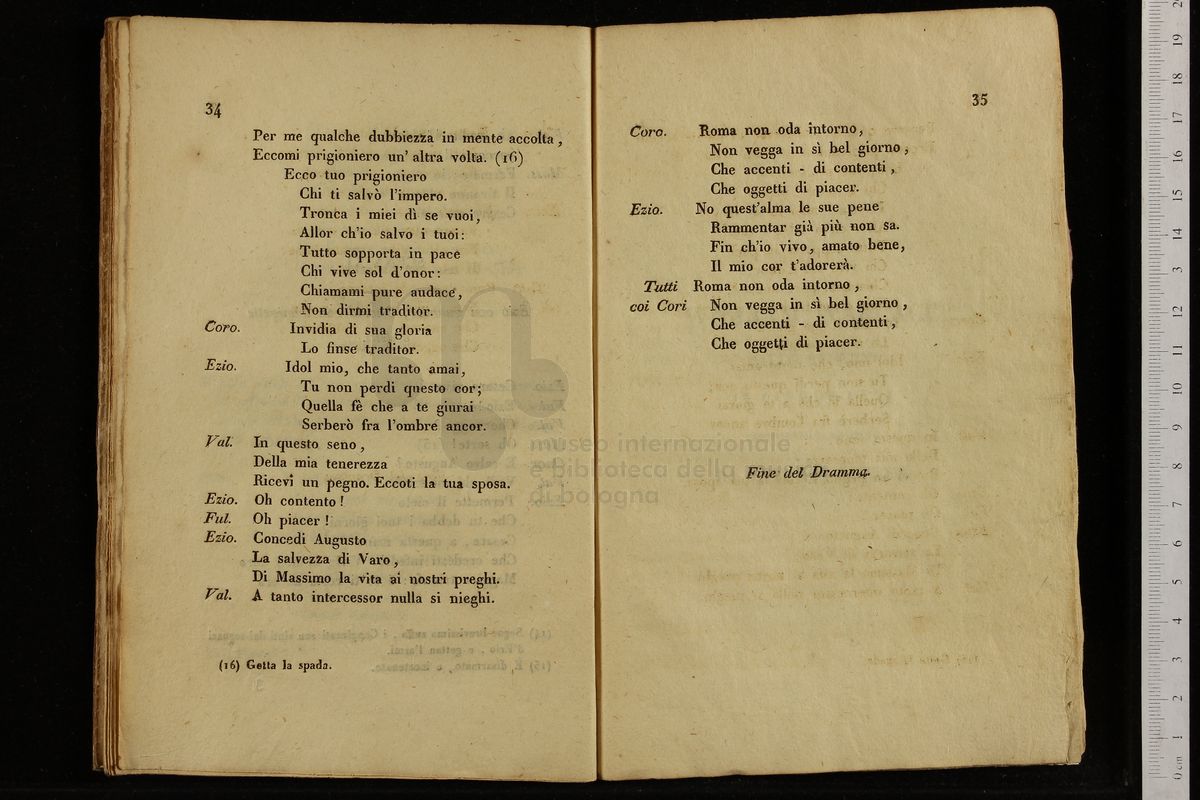 34
Per me qualche dubbiezza in mente accolta,
Eccomi prigioniero un' altra volta. (16)
Ecco tuo prigioniero
Chi ti salvò l'impero.
Tronca i miei dì se vuoi,
Allor ch'io salvo i tuoi:
Tutto sopporta in pace
Chi vive sol d'onor:
Chiamami pure audace,
Non dirmi traditor.
Coro. Invidia di sua gloria
Lo finse traditor.
Ezio. Idol mio, che tanto amai,
Tu non perdi questo cor;
Quella fè che a te giurai
Serberò fra l'ombre ancor.
Val. In questo seno,
Della mia tenerezza
Ricevi un pegno. Eccoti la tua sposa.
Ezio. Oh contento!
Ful. Oh piacer!
Ezio. Concedi Augusto
La salvezza di Varo,
Di Massimo la vita ai nostri preghi.
Val. A tanto intercessor nulla si nieghi.
(16) Getta la spada.
35
Coro. Roma non oda intorno,
Non vegga in sì bel giorno,
Che accenti - di contenti,
Che oggetti di piacer.
Ezio. No quest'alma le sue pene
Rammentar già più non sa.
Fin ch'io vivo, amato bene,
Il mio cor t'adorerà.
Tutti Roma non oda intorno,
coi Cori Non vegga in sì bel giorno,
Che accenti - di contenti,
Che oggetti di piacer.
Fine del Dramma.
museo internazionale
e biblioteca della
di bologna
0 cm 1 2 3 4 5 6 7 8 9 10 11 12 13 14 15 16 17 18 19 20